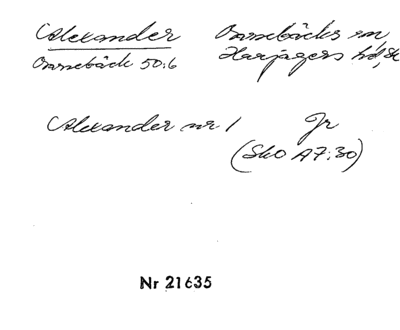 Alexander Barsebäcks sn,
Barsebäck 50:6 Harjagers hd, Sk
Alexander nr 1 Jr
(SkO A7:30)
Nr 21635